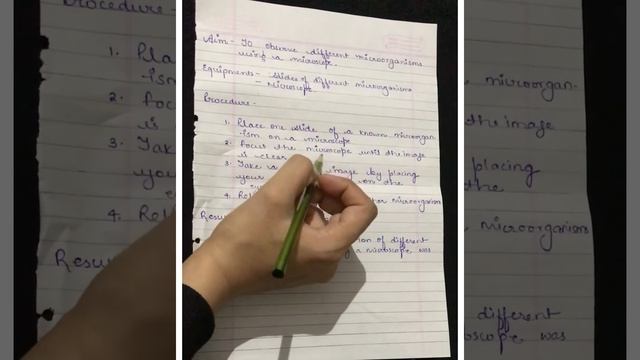 Aim - To observe different microorganisms
using a microscope.
Equipments - Slides of different microorganisms
- Microscope.
Procedure -
1. Place one slide of a known microorgan
-ism on a microscope
2. Focus the microscope until the image
is clear
3. Take a image by placing
your on the
4. microorganism
Resu
ion of different
g a microscope was